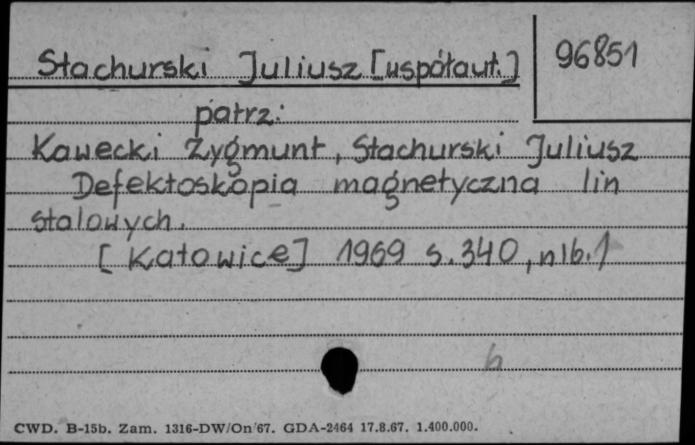 Stachurski Juliusz [współaut.]
96851
patrz:
Kawecki Zygmunt, Stachurski Juliusz
Defektoskopia magnetyczna lin
stalowych.
[Katowice] 1969 s. 340, nlb. 1
h
CWD. B-15b. Zam. 1316-DW/On/67. GDA-2464 17.8.67. 1.400.000.